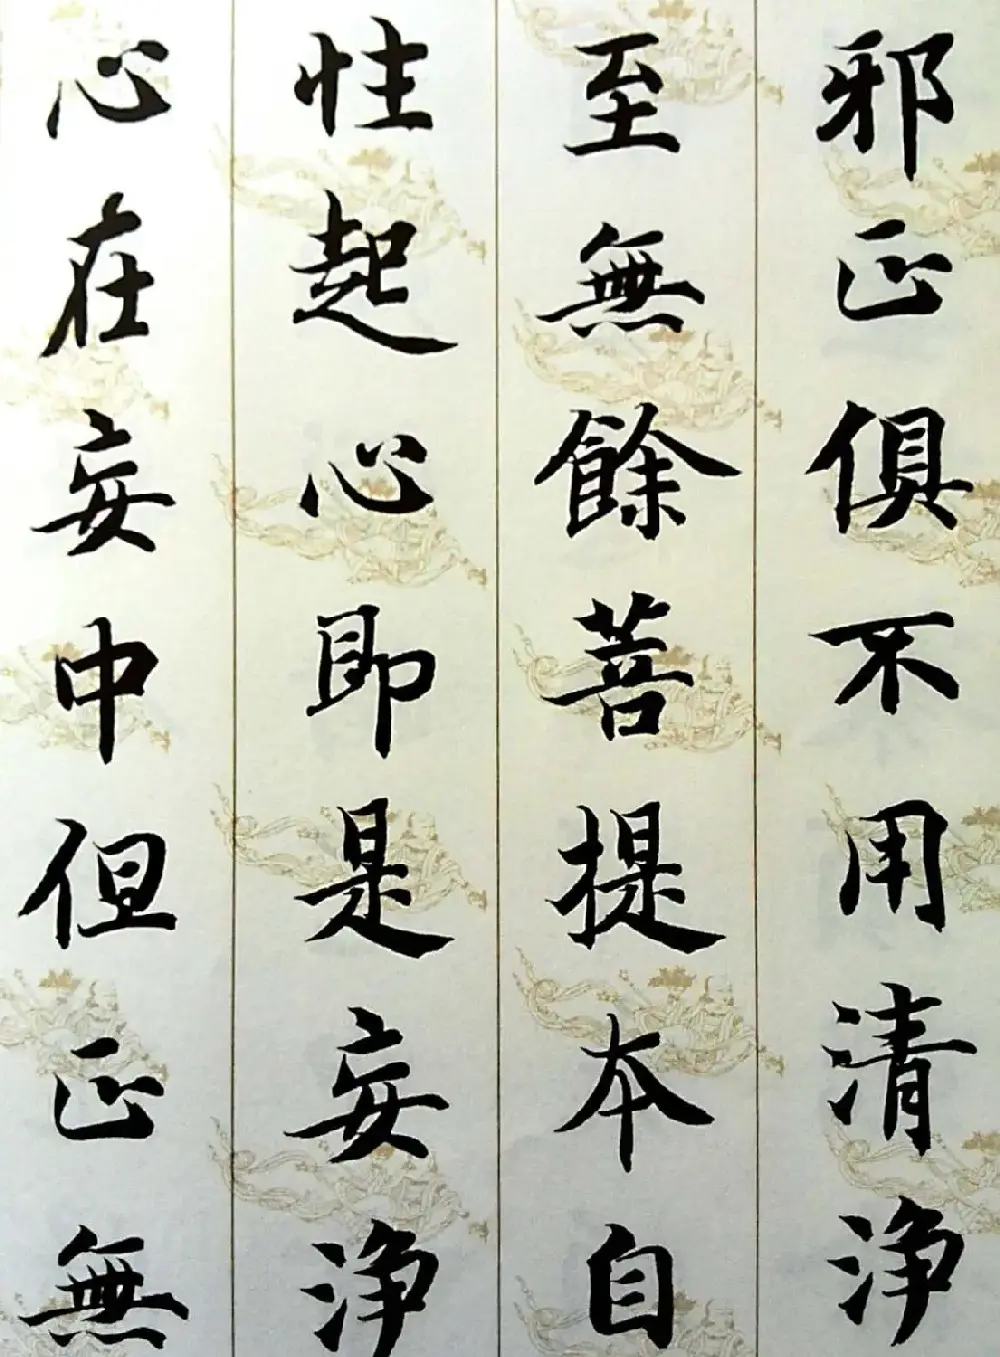 邪正俱不用清淨
至無餘菩提本自
性起心即是妄淨
心在妄中但正無